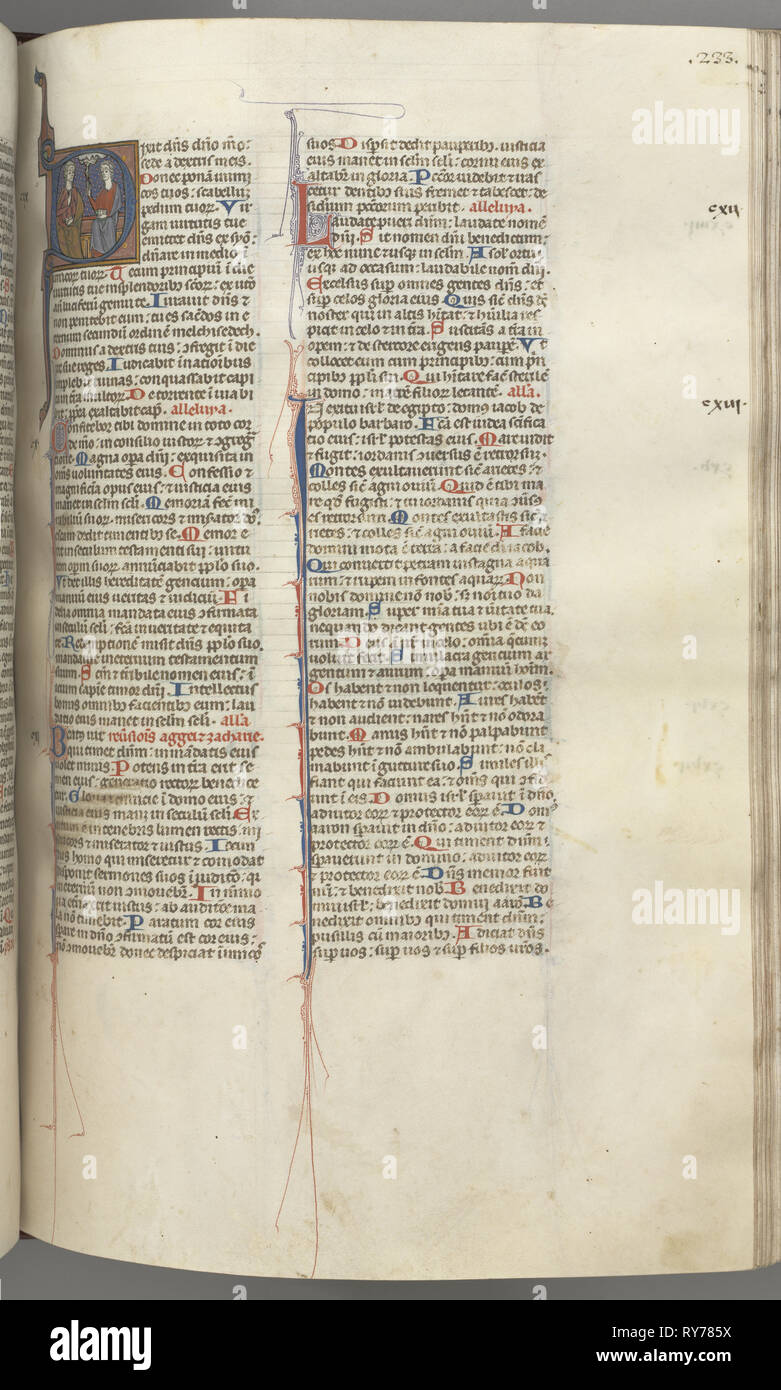 .233.
Dixit dñs dño mõ:
sede a dextris meis.
Donec ponã inimi
cos tuos: scabellũ
pedum tuoꝝ. Vir
gam uirtutis tue
emittet dñs ex syõ:
dñare in medio ĩ
imicoꝝ tuoꝝ. Tecum principiũ ĩ die
uirtutis tue
genui te. Iurauit dñs ⁊
non penitebit eum: tu es sacdos in e
ternum secundũ ordinẽ melchisedech.
Dominus a dextris tuis: ꝯfregit ĩ die
ire sue reges. Iudicabit ĩ nationibus
implebit ruinas: conquassabit capi
De torrente ĩ uia bi
alleluya.
Confitebor tibi domine in toto cor
in consilio iustoꝝ ⁊
Magna opa dñi: exquisita in
om̃s uoluntates eius. Confessio ⁊
magnificẽtia opus eius: ⁊ iusticia eius
manet in
Memoriã fecit
escam dedit timentibus se. Memor e
rit in seculum testamenti sui: uirtu
tem opum suoꝝ annũciabit pplo suo.
Vt det illis hereditatẽ gencium: opa
manuũ eius ueritas ⁊ iudiciũ. Fi
delia omnia mandata eius ꝯfirmata
in seculũ scli: fcã in ueritate ⁊ equita
te. Redẽptionẽ misit dñs pplo suo.
mandauit in eternum testamentum
suum. Scm̃ ⁊ tribile nomen eius: ĩ
itium sapiẽtie timor dñi. Intellectus
bonus omnibus facientibus eum: lau
datio eius manet in sclm scli. alla
Beatus uir reuisiõis aggei ⁊ zacharie.
qui timet dñm: in mãdatis eius
uolet nimis. Potens in tra erit se
men eius: generatio rectoꝝ benedice
tur. Gloria ⁊ diuicie ĩ domo eius: ⁊
iusticia eius manet in seculũ scli. Ex
ortum ẽ in tenebris lumen rectis: mi
sericors ⁊ miserator ⁊ iustus. Iocun
dus homo qui miseretur ⁊ comodat
disponit sermones suos ĩ iudicio: qi
ineternũ non ꝯmouebit. In memo
ria etna erit iustus: ab auditõe ma
la nõ timebit. Paratum cor eius
spare in dño ꝯfirmatũ est cor eius:
nõ ꝯmouebit donec despiciat inimicos
suos. Dispsit dedit paupibus. iusticia
eius manet in sclm scli: cornu eius ex
altabit in gloria. Pctõr uidebit ⁊ iras
cetur dentibus suis fremet ⁊ tabescet: de
siderium pctõrum peribit. alleluya.
cxii
Laudate pueri dñm: laudate nomẽ
dñi. Sit nomen dñi benedictum:
ex hoc nunc ⁊ usq; in sclm. A solis ortu
usq; ad occasum: laudabile nom̃ dñi.
Excelsus sup omnes gentes dñs: ⁊
sup celos gloria eius. Quis sic dñs ds̃
noster qui in altis hitat: ⁊ humilia res
picit in celo ⁊ in tra. Suscitãs a tra in
opem: ⁊ de stercore erigens paupẽ. Vt
collocet eum cum principibus: cum prin
cipibus ppli sui. Qui hitare facit sterilẽ
in domo: matrẽ filioꝝ letantẽ. alla.
cxiii.
In exitu isrl de egipto: domus iacob de
populo barbaro. Fcã est iudea scifica
tio eius: isrl potestas eius. Mare uidit
⁊ fugit: iordanis ꝯuersus ẽ retrorsum.
Montes exultauerunt sic arietes: ⁊
colles sic agni ouiũ. Quid ẽ tibi ma
re qd̃ fugisti: ⁊ tu iordanis quia ꝯuersus
es retrorsum. Montes exultastis sic a
rietes: ⁊ colles sic agni ouiũ. A facie
domini mota ẽ terra: a facie dei iacob.
Qui conuertit petram in stagna aqua
rum: ⁊ rupem in fontes aquaꝝ. Non
nobis domine nõ nob: sed noi tuo da
gloriam. Super mia tua ⁊ uitate tua.
nequando dicant gentes ubi ẽ ds̃ eo
rum. Deus aut in celo: omia quecumq;
uoluit fecit. Simulacra gencium ar
gentum ⁊ aurum: opa manuũ hoim.
Os habent ⁊ non loquentur: oculos
habent ⁊ nõ uidebunt. Aures habẽt
⁊ non audient: nares hnt ⁊ nõ odora
bunt. Manus hnt ⁊ nõ palpabunt
pedes hnt ⁊ nõ ambulabunt: nõ cla
mabunt ĩ gutture suo. Similes illis
fiant qui faciunt ea: ⁊ om̃s qui ꝯfid
unt ĩ eis. Domus isrl sperauit ĩ dño.
adiutor eoꝝ ⁊ protector eoꝝ ẽ. Domus
aaron sperauit in dño: adiutor eoꝝ ⁊
protector eoꝝ ẽ. Qui timent dñm:
sperauerunt in domino: adiutor eoꝝ
⁊ protector eoꝝ ẽ. Dñs memor fuit
nri: ⁊ benedixit nob. Benedixit do
mui isrl: benedixit domui aarõ. Be
nedixit omnibus qui timent dñm:
pusillis cũ maioribus. Adiciat dñs
sup uos: sup uos ⁊ sup filios uros.
alamy
alamy
alamy
Image ID: RY785X
www.alamy.com